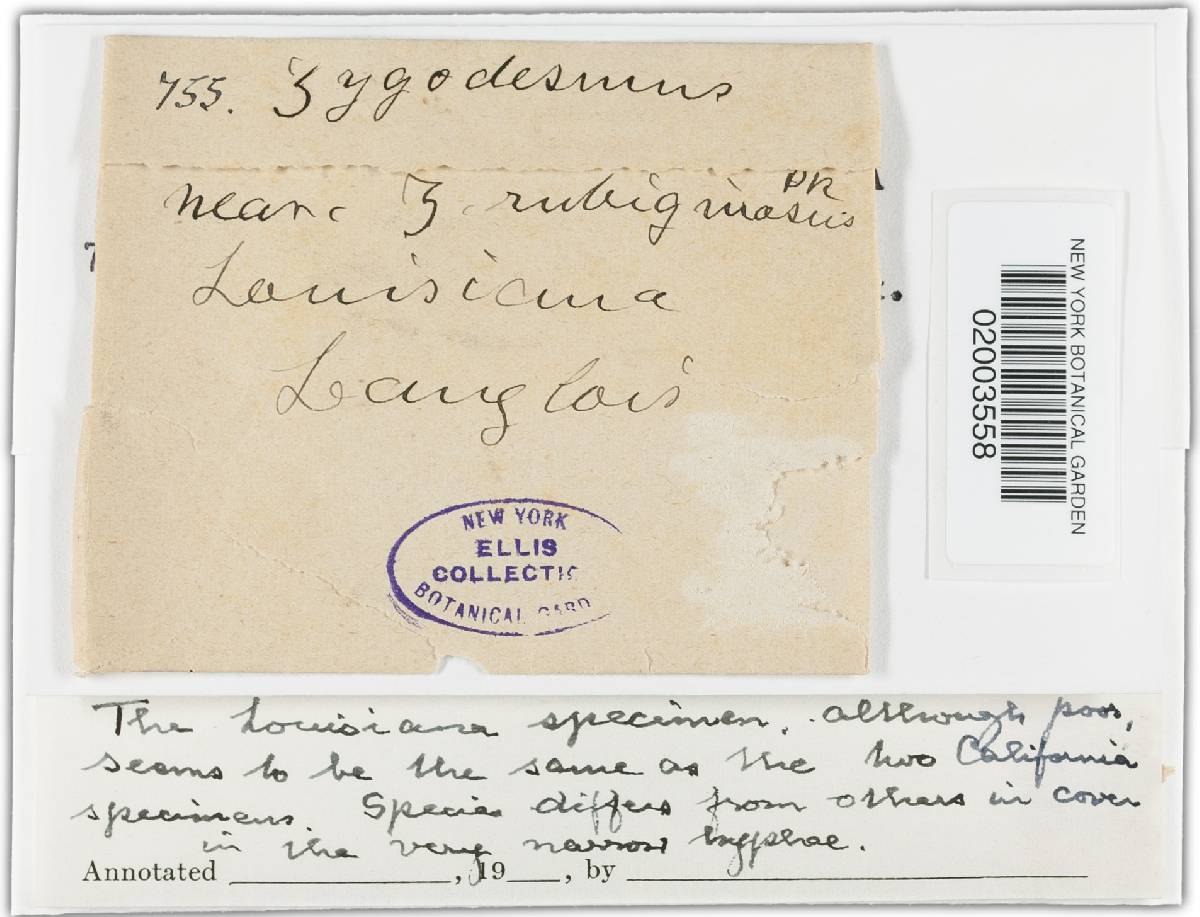 755. Zygodesmus
near. Z. rubiginosus Pk
Louisiana
Langlois
NEW YORK
ELLIS
COLLECTIO
BOTANICAL GARD
NEW YORK BOTANICAL GARDEN
02003558
The Louisiana specimen, although poor,
seems to be the same as the two California
specimens. Species differs from others in cover
in the very narrow hyphae.
Annotated ____________, 19___, by ____________